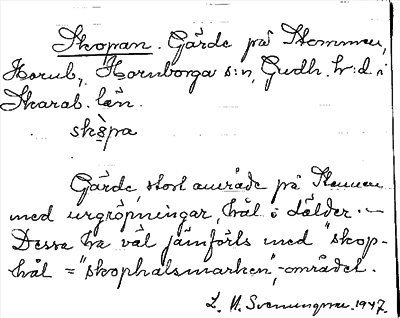 Skopan. Gärde på Stommen,
Hornb., Hornborga s:n, Gudh. h:d i
Skarab. län.
skåpa
Gärde, stort område på Stommen
med urgröpningar, hål i dälder. –
Dessa ha väl jämförts med "skop-
hål = "skophålsmarken",-området.
L. N. Svenungsson. 1947.